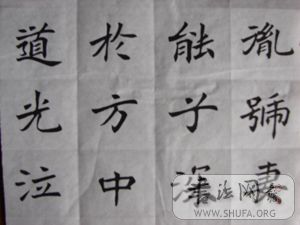 胤號
能子
於方中
道光泣
WWW.SHUFA.ORG